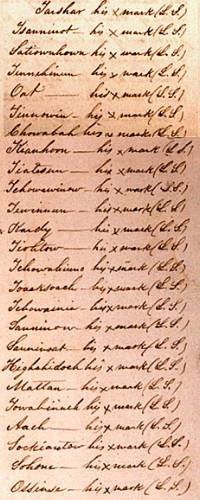 Tarshar his x mark (L.S.)
Tsanninot his x mark (L.S.)
Shtiownhown his x mark (L.S.)
Tinnchinum his x mark (L.S.)
Out — his x mark (L.S.)
Tinnowin — his x mark (L.S.)
Chowabah his x mark (L.S.)
Kianhoon — his x mark (L.S.)
Tiatesun — his x mark (L.S.)
Tchowiwinow — his x mark (L.S.)
Tewinum — his x mark (L.S.)
Hardy — his x mark (L.S.)
Tioltow — his x mark (L.S.)
Tchowaliims his x mark (L.S.)
his x mark (L.S.)
Tchowainie his x mark (L.S.)
Tanninow — his x mark (L.S.)
his x mark (L.S.)
Highahidoch his x mark (L.S.)
Mattan — his x mark (L.S.)
Towabinnck his x mark (L.S.)
Nach — his x mark (L.S.)
Sockiantow his x mark (L.S.)
Sohone — his x mark (L.S.)
Ossinse — his x mark (L.S.)